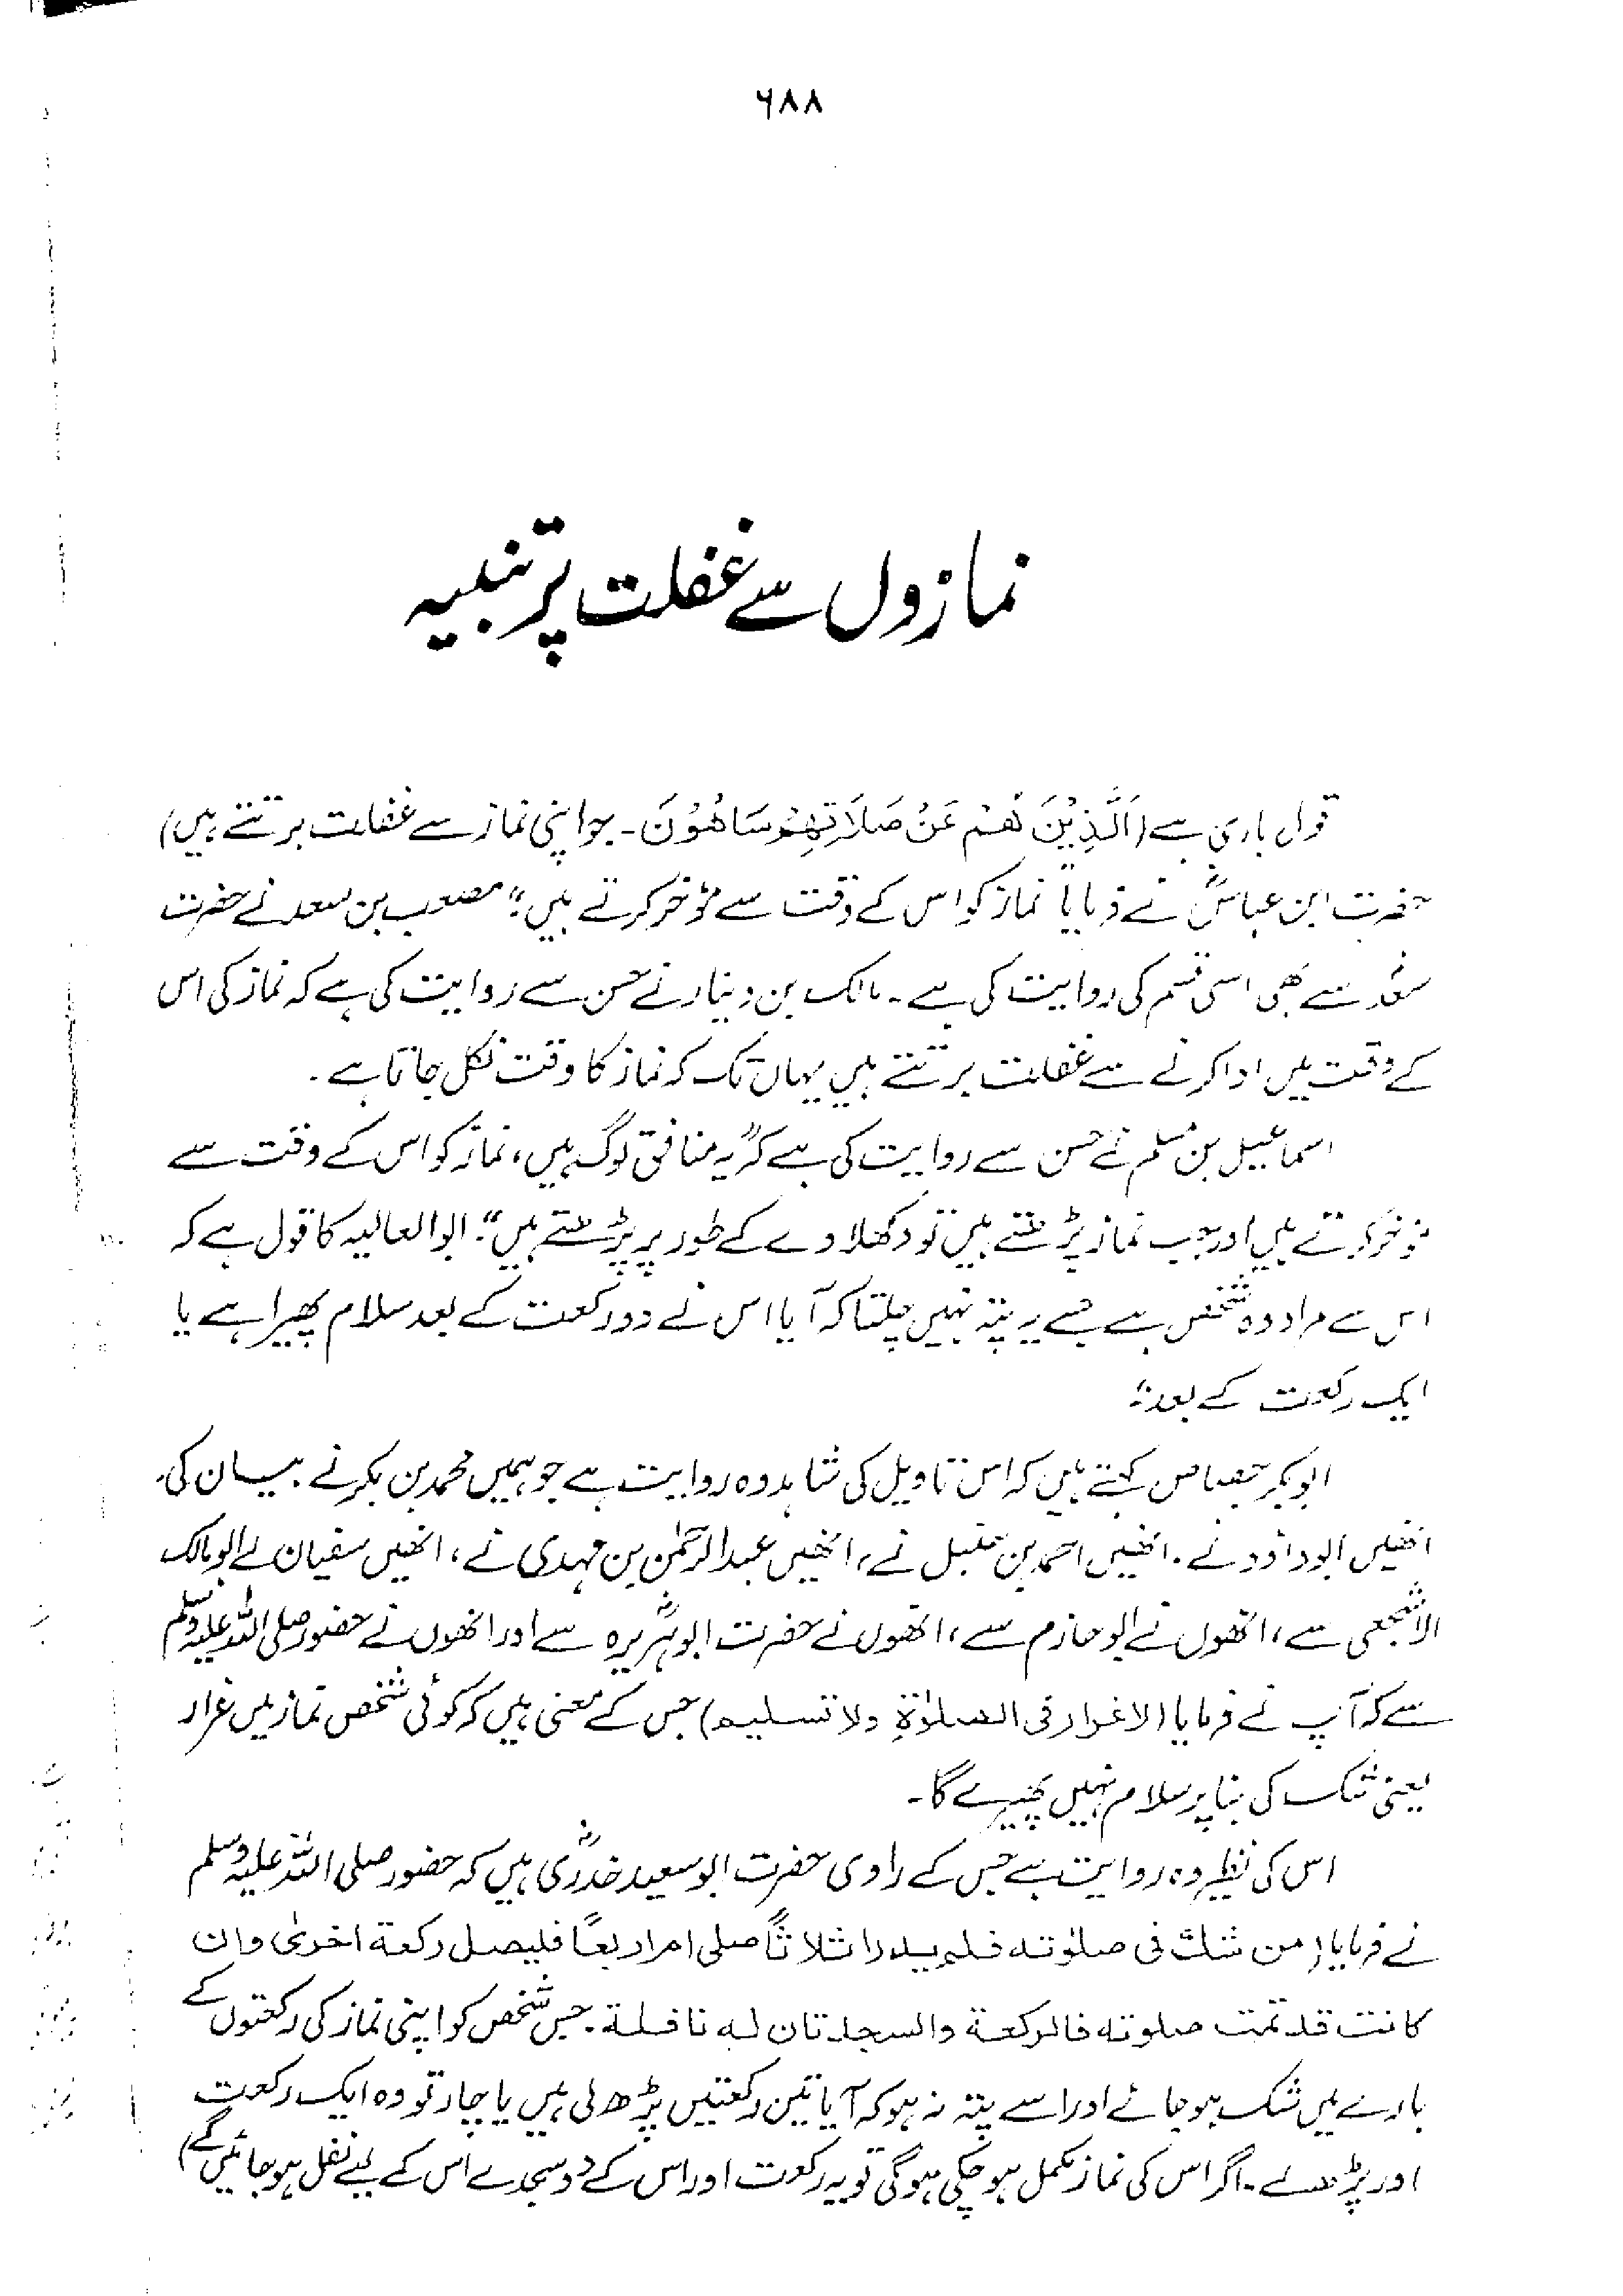 ۶۸۸
نمازوں سے غفلت پر تنبیہ
قول باری ہے (اَلَّذِيْنَ هُمْ عَنْ صَلَاتِهِمْ سَاهُوْنَ۔ جو اپنی نماز سے غفلت برتتے ہیں)
حضرت ابن عباسؓ نے فرمایا "نماز کو اس کے وقت سے مؤخر کرتے ہیں"۔ مصعب بن سعد نے حضرت
سعدؓ سے بھی اسی قسم کی روایت کی ہے۔ مالک بن دینار نے حسن سے روایت کی ہے کہ نماز کی اس
کے وقت میں ادا کرنے سے غفلت برتتے ہیں یہاں تک کہ نماز کا وقت نکل جاتا ہے۔
اسماعیل بن مسلم نے حسن سے روایت کی ہے کہ "یہ منافق لوگ ہیں، نماز کو اس کے وقت سے
مؤخر کرتے ہیں اور جب نماز پڑھتے ہیں تو دکھلاوے کے طور پر پڑھتے ہیں"۔ ابوالعالیہ کا قول ہے کہ
اس سے مراد وہ شخص ہے جسے یہ پتہ نہیں چلتا کہ آیا اس نے دو رکعت کے بعد سلام پھیرا ہے یا
ایک رکعت کے بعد"۔
ابوبکر جصاص کہتے ہیں کہ اس تاویل کی شاہد وہ روایت ہے جو ہمیں محمد بن بکر نے بیان کی،
انھیں ابوداؤد نے، انھیں احمد بن حنبل نے، انھیں عبدالرحمٰن بن مہدی نے، انھیں سفیان نے ابومالک
الاشجعی سے، انھوں نے ابوحازم سے، انھوں نے حضرت ابوہریرہؓ سے اور انھوں نے حضور صلی اللہ علیہ وسلم
سے کہ آپ نے فرمایا (لاغرار فی الصلوٰۃ ولا تسلیم) جس کے معنی ہیں کہ کوئی شخص نماز میں غرار
یعنی شک کی بنا پر سلام نہیں پھیرے گا۔
اس کی نظیر وہ روایت ہے جس کے راوی حضرت ابوسعید خدریؓ ہیں کہ حضور صلی اللہ علیہ وسلم
نے فرمایا (من شك فی صلوٰته فلم يدر اثلاثاً صلی ام اربعاً فليصل ركعة اخریٰ وان
كانت قد تمت صلوته فالركعة والسجدتان له نافلة۔ جس شخص کو اپنی نماز کی رکعتوں کے
بارے میں شک ہو جائے اور اسے پتہ نہ ہو کہ آیا تین رکعتیں پڑھ لی ہیں یا چار تو وہ ایک رکعت
اور پڑھ لے۔ اگر اس کی نماز مکمل ہو چکی ہوگی تو یہ رکعت اور اس کے دو سجدے اس کے لیے نفل ہو جائیں گے)